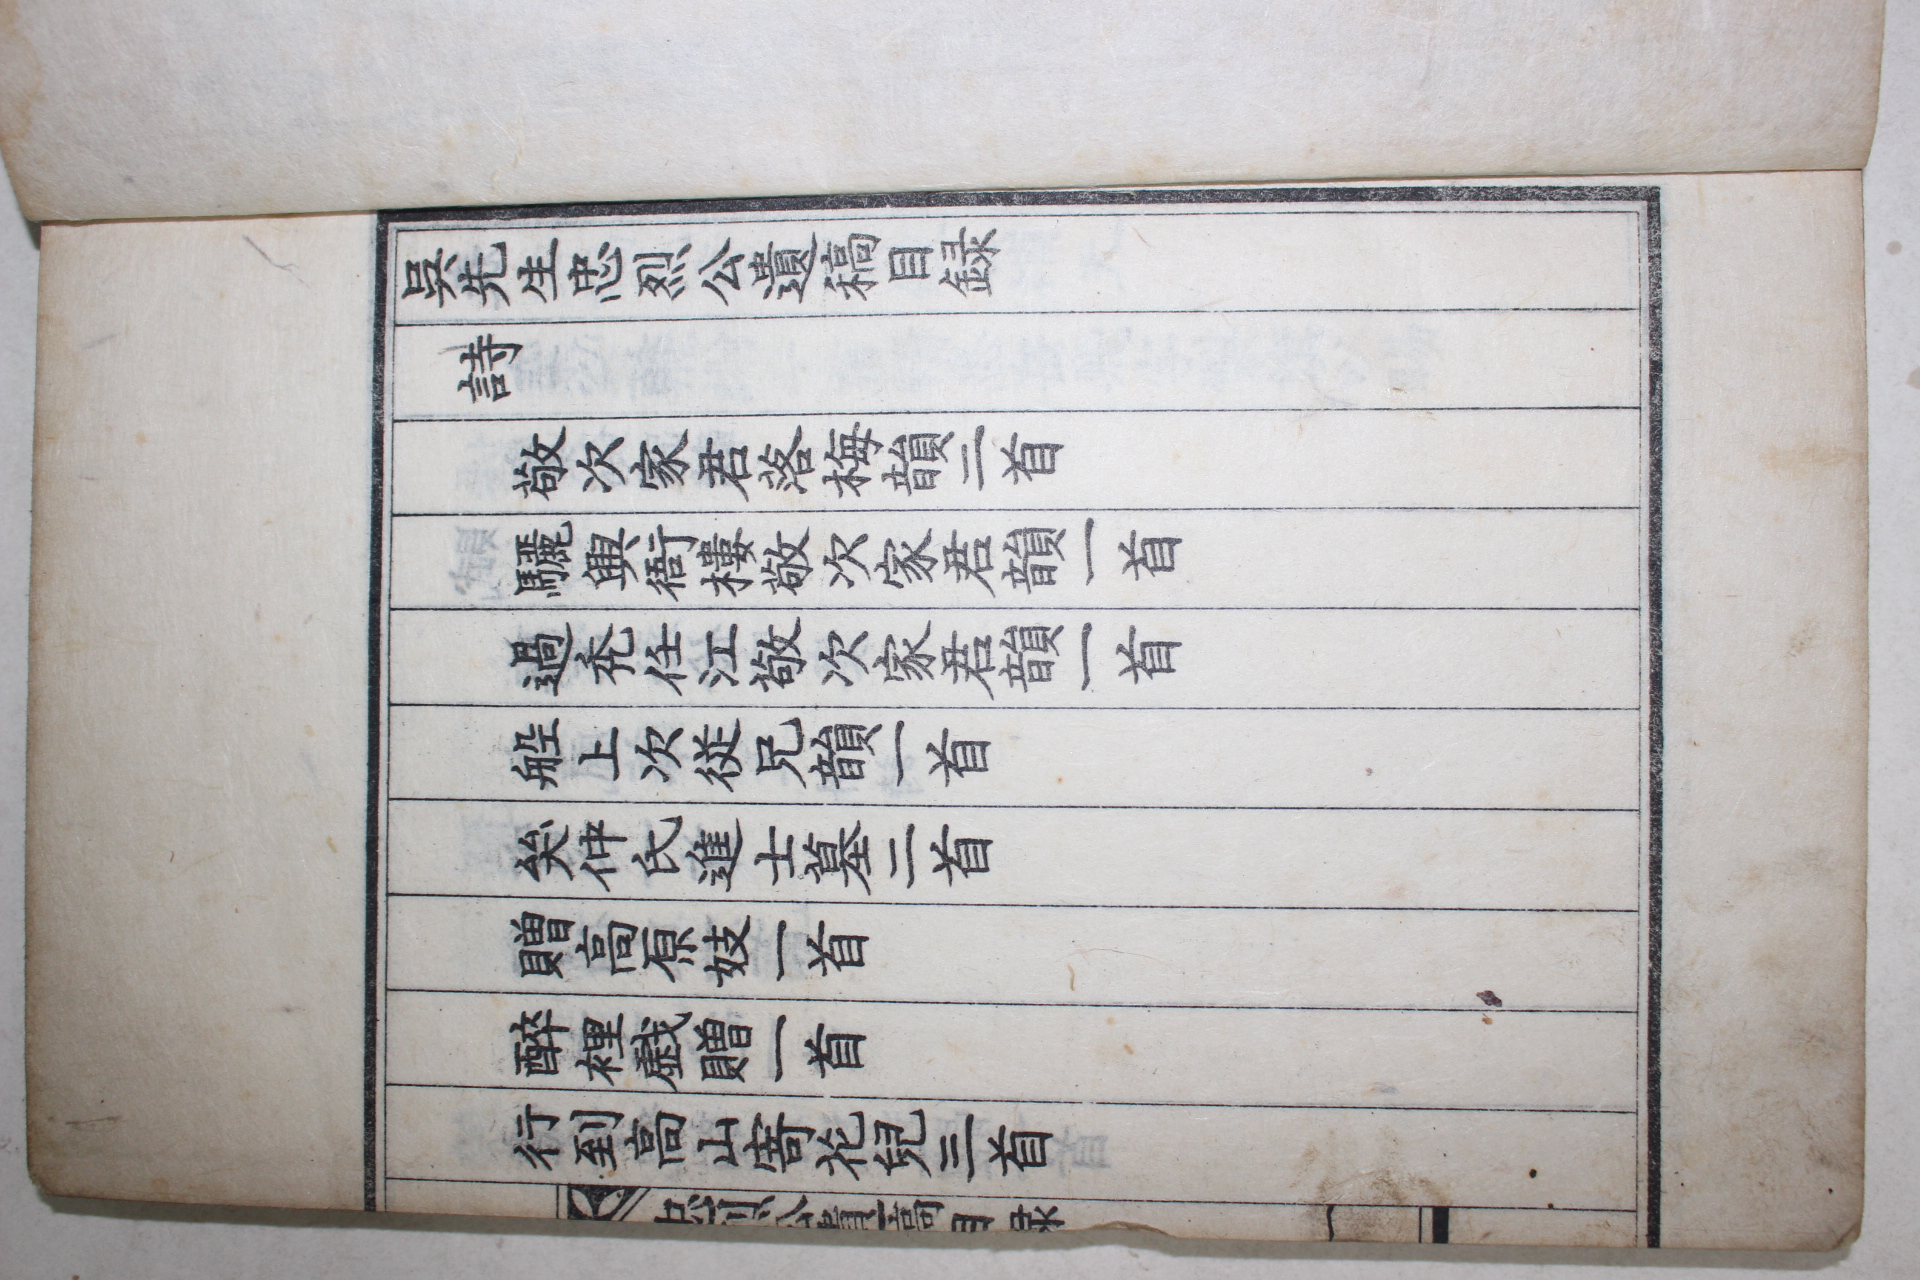 吳先生忠烈公遺稿目錄
詩
敬次家君落梅韻二首
驪興衙樓敬次家君韻一首
過禿任江敬次家君韻一首
船上次從兄韻一首
矣仲氏進士墓二首
贈高原妓一首
醉裡戱贈一首
行到高山寄花兒三首
忠烈公遺稿目錄
一